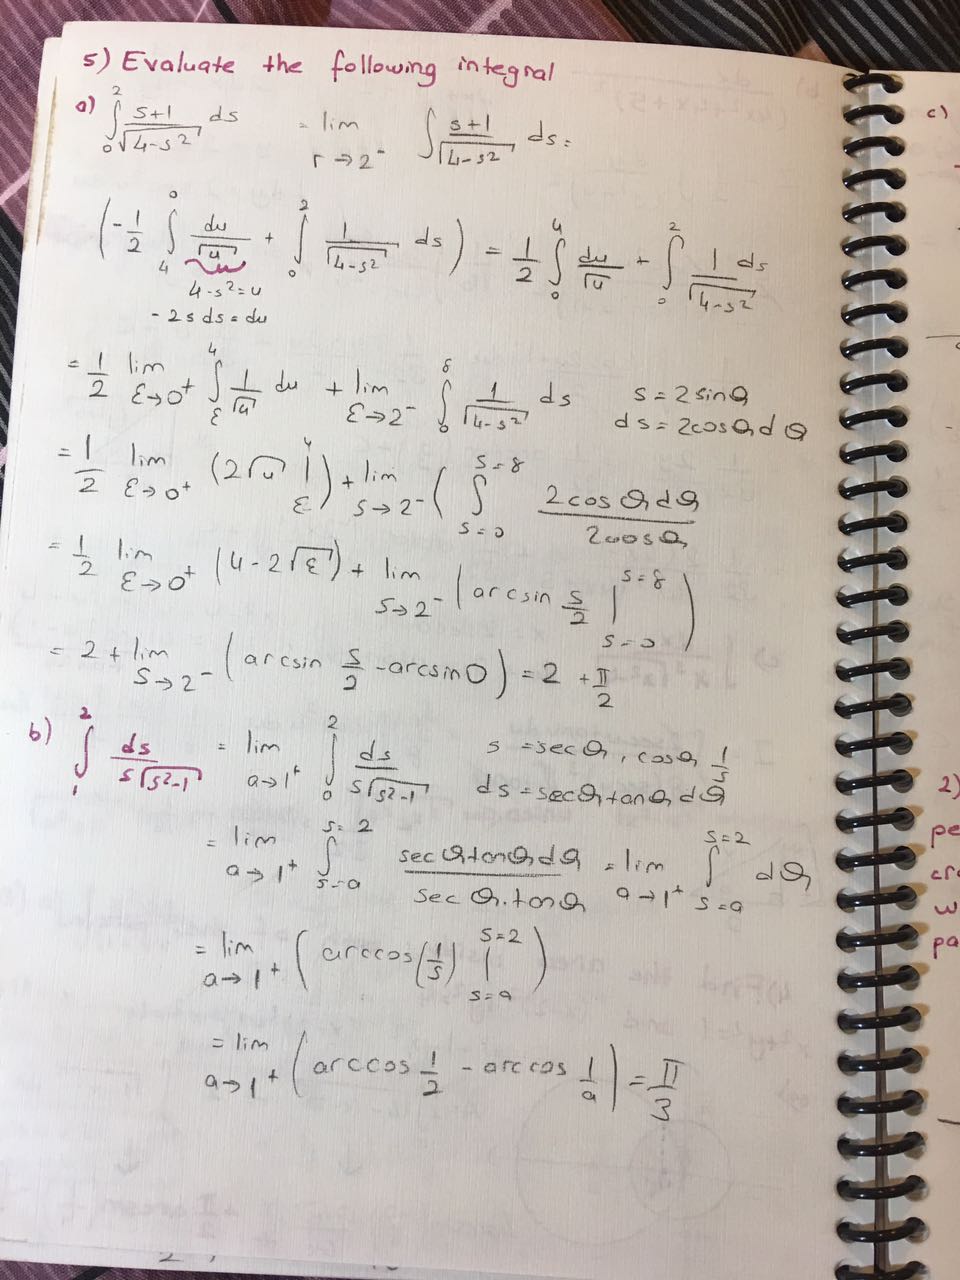 5) Evaluate the following integral
a) ∫₀² (s+1)/√(4-s²) ds = lim r→2⁻ ∫ (s+1)/√(4-s²) ds =
(-1/2 ∫₄⁰ du/√u + ∫₀² 1/√(4-s²) ds) = 1/2 ∫₀⁴ du/√u + ∫₀² 1/√(4-s²) ds
4-s²=u
-2sds=du
= 1/2 lim ε→0⁺ ∫_ε⁴ 1/√u du + lim ε→2⁻ ∫₀^8 1/√(4-s²) ds s=2sinθ
ds=2cosθdθ
= 1/2 lim ε→0⁺ (2√u |_ε⁴) + lim s→2⁻ ( ∫_{s=0}^{s=8} 2cosθdθ/2cosθ
= 1/2 lim ε→0⁺ (4-2√ε) + lim s→2⁻ (arcsin s/2 |_{s=0}^{s=8})
= 2 + lim s→2⁻ (arcsin s/2 - arcsin0) = 2 + π/2
b) ∫₁² ds/s√(s²-1) = lim a→1⁺ ∫₀² ds/s√(s²-1) s=secθ, cosθ 1/s
ds=secθtanθdθ
= lim a→1⁺ ∫_{s=a}^{s=2} secθtanθdθ/secθ.tanθ = lim a→1⁺ ∫_{s=a}^{s=2} dθ
= lim a→1⁺ (arccos(1/s) |_{s=a}^{s=2})
= lim a→1⁺ (arccos 1/2 - arccos 1/a) = π/3
c)
2)
pe
cr
w
pa